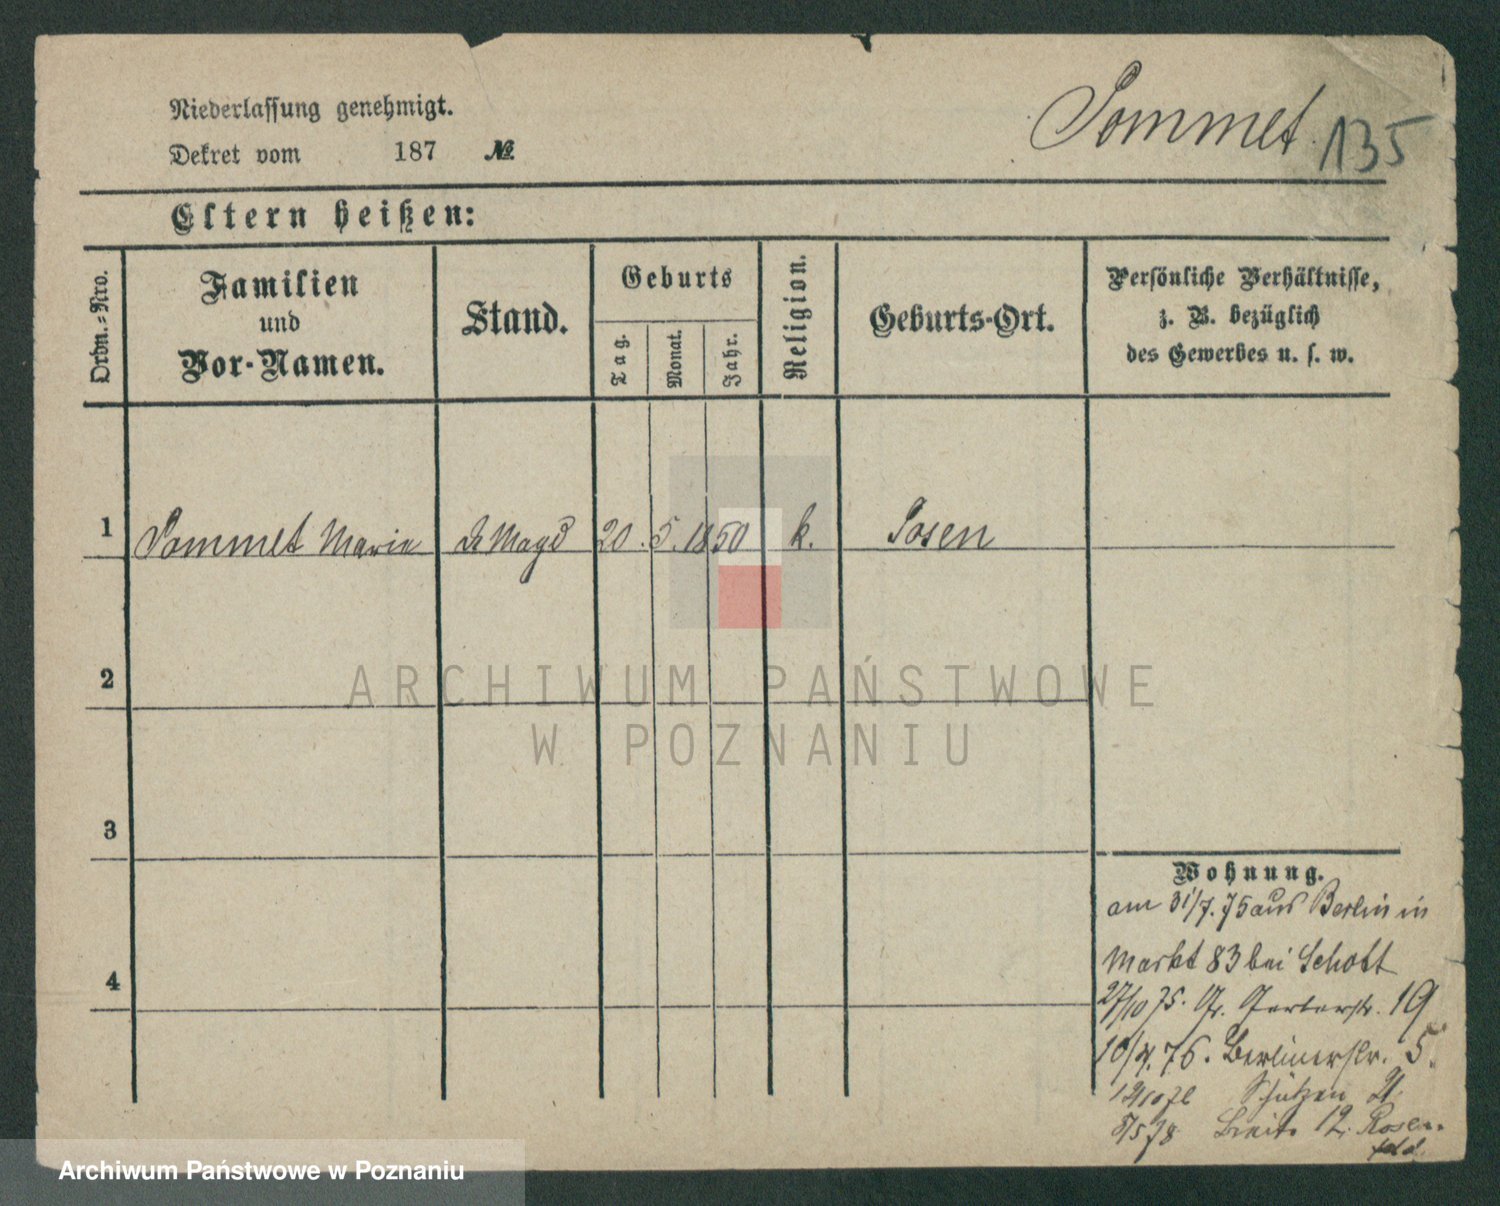 Niederlassung genehmigt.
Dekret vom 187 №
Pommet 135
Eltern heißen:
Ordn.-Nro.
Familien
und
Vor-Namen.
Stand.
Geburts
Tag.
Monat.
Jahr.
Religion.
Geburts-Ort.
Persönliche Verhältnisse,
z. B. bezüglich
des Gewerbes u. s. w.
1 Pommet Marie Magd 20. 5. 1850 k. Posen
2
3
4
ARCHIWUM PAŃSTWOWE
W POZNANIU
Wohnung.
am 31/7. 75 aus Berlin in
Markt 83 bei Schott
27/10 75. Gr. Gerberstr. 19
10/4. 76. Berlinerstr. 5.
Schützen 21
8/5 78 Breite 12. Rosen-
feld
Archiwum Państwowe w Poznaniu